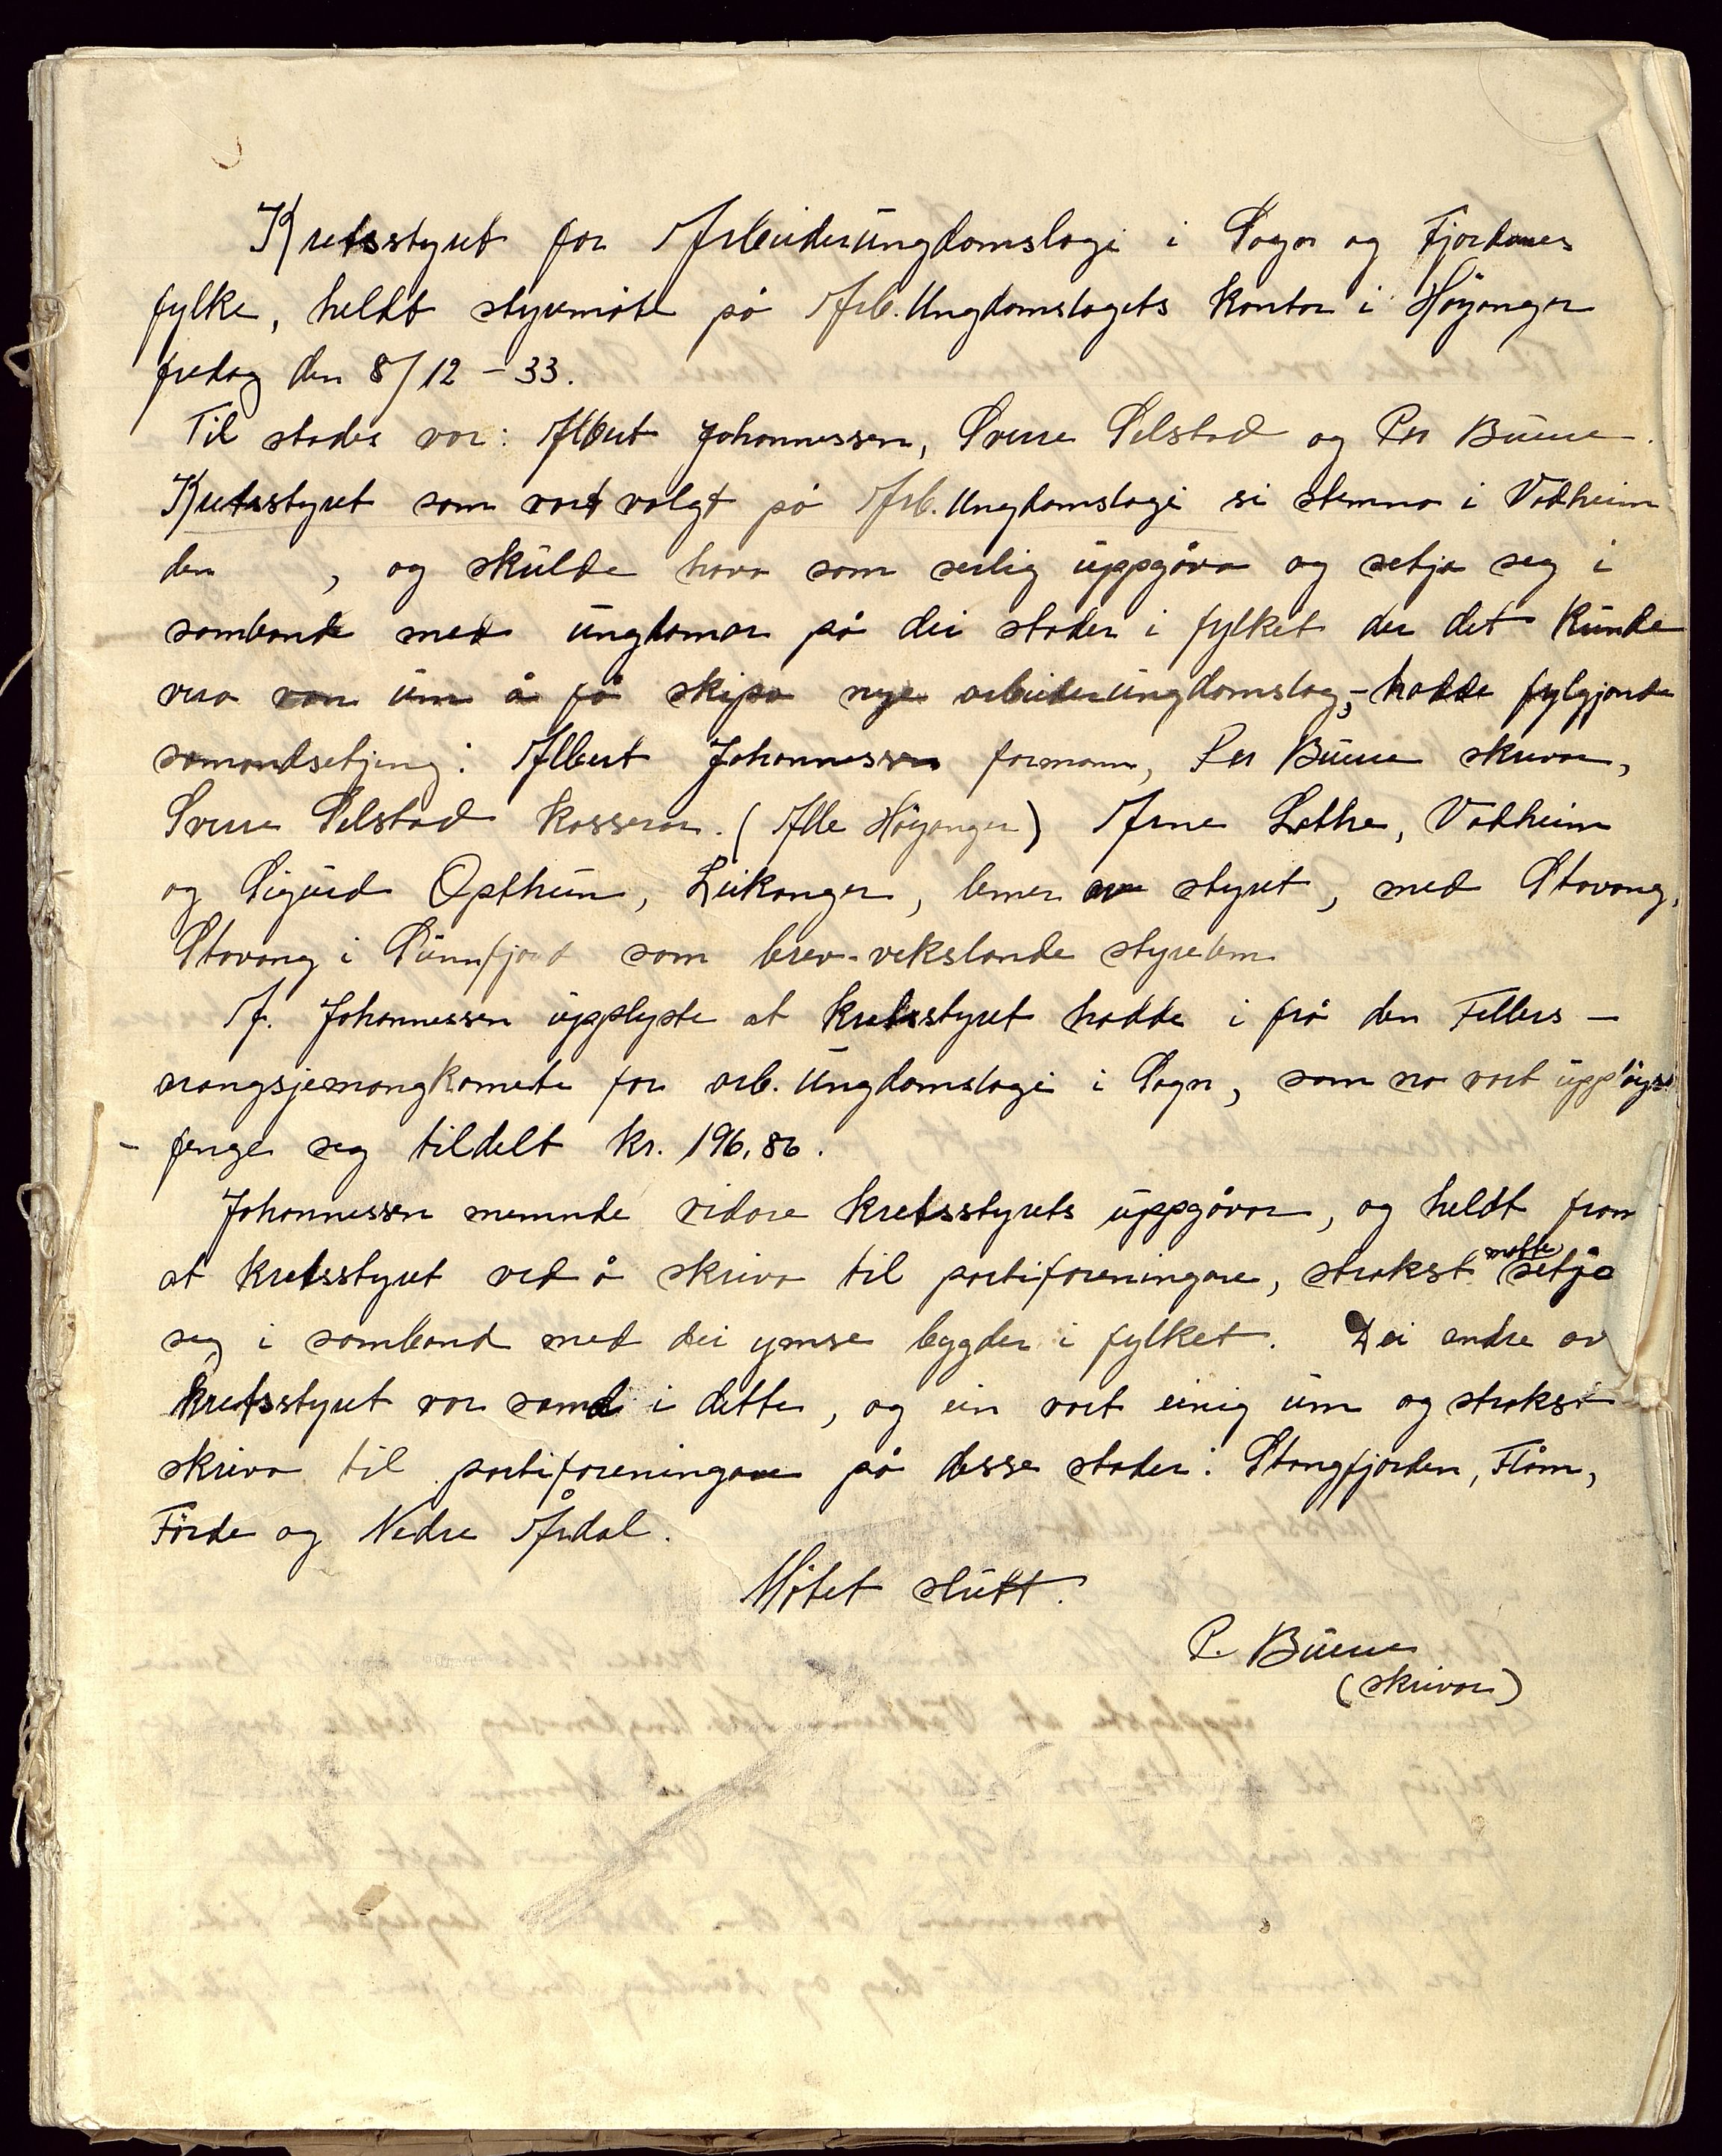 Kretsstyret for Arbeiderungdomslagi i Sogn og Fjordanes
fylke, heldt styremöte på Arb. Ungdomslagets kontor i Höyanger
fredag den 8/12 - 33.
Til stades var: Albert Johannessen, Sverre Selstad og Per Buene.
Kretsstyret som vart valgt på Arb. Ungdomslagi si stemna i Vadheim
den , og skulde hava som serlig uppgåva og setja seg i
samband med ungdomar på dei stader i fylket der det kunde
vera von um å få skipa nye arbeiderungdomslag, - hadde fylgjande
samandsetjing: Albert Johannessen formann, Per Buene skrivar,
Sverre Selstad kasserar. (Alle Höyanger) Arne Lothe, Vadheim
og Sigurd Opthun, Leikanger, lemer av styret, med Stavang,
Stavang i Sunnfjord som brev-vekslande styrelem
A. Johannessen upplyste at kretsstyret hadde i frå den Felles-
arangsjemangkomite for arb. ungdomslagi i Sogn, som no vart upplöyst
- fenge seg tildelt kr. 196,86.
Johannessen nemnde vidare kretsstyrets uppgåvor, og heldt fram
at kretsstyret ved å skriva til partiforeningane, strakst måtte setja
seg i samband med dei ymse bygder i fylket. Dei andre av
kretsstyret var samd i dette, og ein vart einig um og strakst
skriva til partiforeningane på desse stader: Stangfjorden, Flåm,
Förde og Nedre Årdal.
Mötet slutt.
P. Buene
(skrivar)